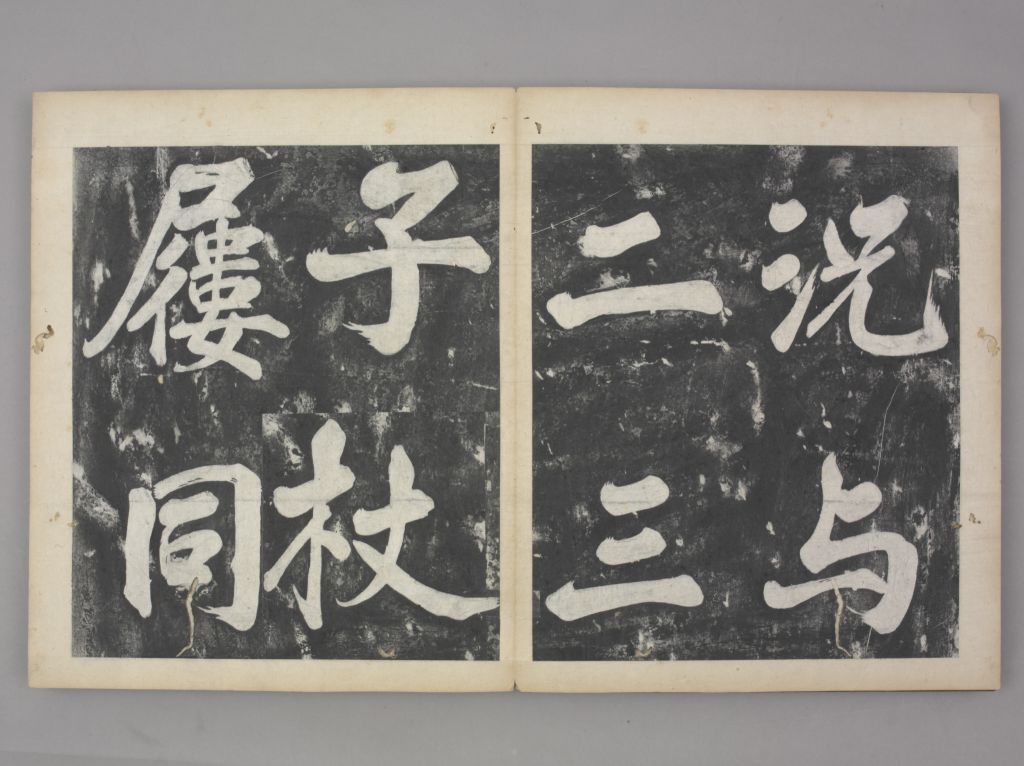 況与
二三
子杖
屨同